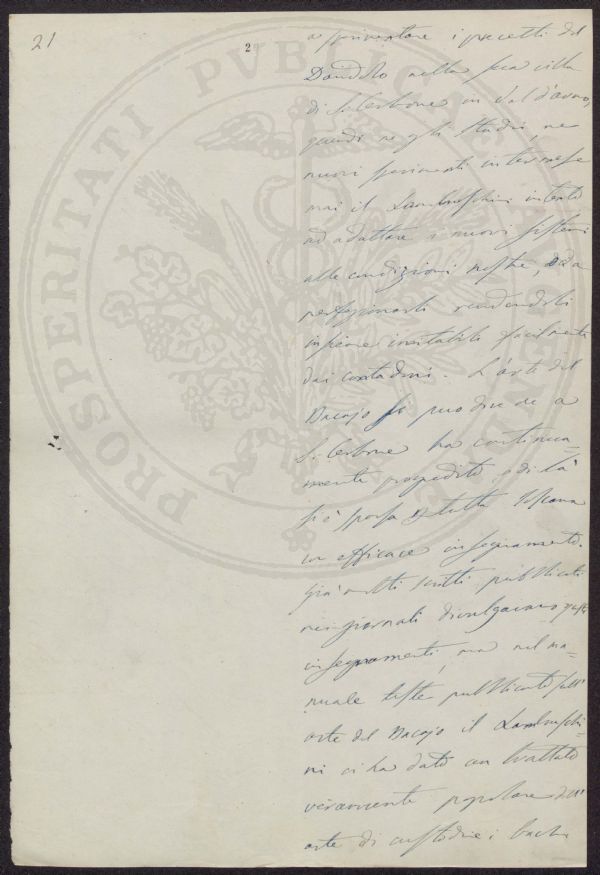 21
2
a sperimentare i precetti del
Dandolo nella sua villa
di S. Cerbone in Val d'Arno,
quindi negli studi, ne
nuovi sperimenti intermesse
mai il Lambruschini intento
ad adattare i nuovi sistemi
alle condizioni nostre, e a
perfezionarli rendendoli
insieme imitabili facilmente
dai contadini. L'arte del
Bacajo si può dire che a
S. Cerbone ha continua-
mente progredito, e di là
si è sparsa per tutta Toscana
con efficace insegnamento.
Già molti scritti pubblicati
nei giornali divulgavano questi
insegnamenti, ma nel ma-
nuale teste pubblicato sull'
arte del Bacajo il Lambruschi-
ni ci ha dato un trattato
veramente popolare dell'
arte di custodire i bachi
PROSPERITATI PUBLICAE AUGENDAE